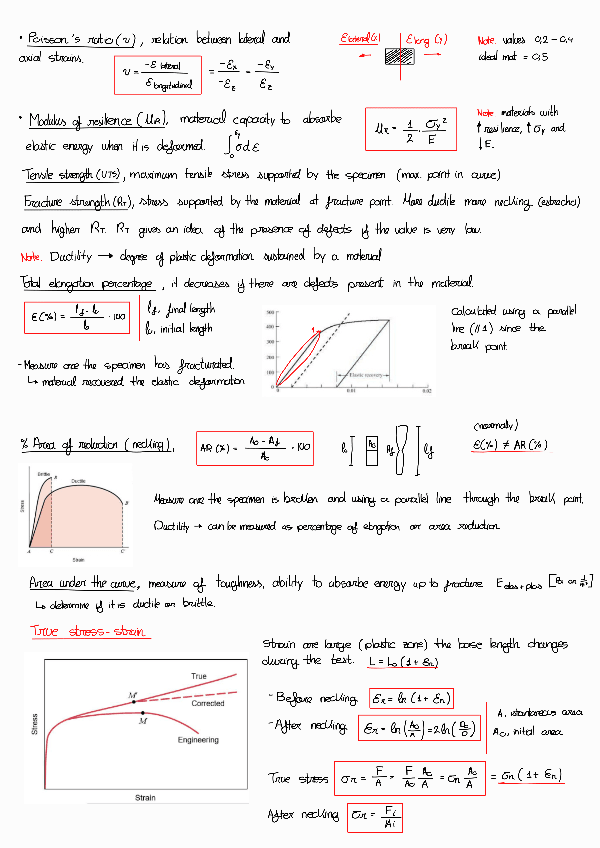 • Poisson's ratio (ν), relation between lateral and
axial strains.
ν = -ε lateral / ε longitudinal = -εx / -εz = -εy / εz
ε lateral (x) ε long (y)
Note. values 0,2 - 0,4
ideal mat = 0,5
• Modulus of resilience (UR), material capacity to absorbe
elastic energy when it is deformed. ∫₀^εy σdε
UR = 1/2 · σy² / E
Note materials with
↑ resilience, ↑ σy and
↓ E.
Tensile strength (UTS), maximum tensile stress supported by the specimen (max. point in curve)
Fracture strength (RT), stress supported by the material at fracture point. More ductile more necking (estrecho)
and higher RT. RT gives an idea of the presence of defects if the value is very low.
Note. Ductility → degree of plastic deformation sustained by a material
Total elongation percentage, it decreases if there are defects present in the material.
ε(%) = lf - lo / lo · 100
lf, final length
lo, initial length
- Measure one the specimen has fracturated.
↳ material recovered the elastic deformation
500
400
300
200
100
0
0
0.01
0.02
1
Elastic recovery
Calculated using a parallel
line (// 1) since the
break point.
% Area of reduction (necking),
AR (%) = Ao - Af / Ao · 100
lo Ao Af lf
(normally)
ε(%) ≠ AR (%)
Stress
Brittle
Ductile
B
B
A
C
C'
Strain
Measure one the specimen is broken and using a parallel line through the break point.
Ductility → can be measured as percentage of elongation or area reduction
Area under the curve, measure of toughness, ability to absorbe energy up to fracture E elas + plas
↳ determine if it is ductile or brittle.
True stress - strain
Stress
True
M'
Corrected
M
Engineering
Strain
Strain are large (plastic zone) the base length changes
during the test. L = Lo (1 + εn)
- Before necking εr = ln (1 + εn)
- After necking εr = ln (Ao/A) = 2 ln (Do/D)
A, istantaneous area
Ao, initial area
True stress σr = F/A = F/Ao Ao/A = σn Ao/A = σn (1 + εn)
After necking σr = Fi / Ai